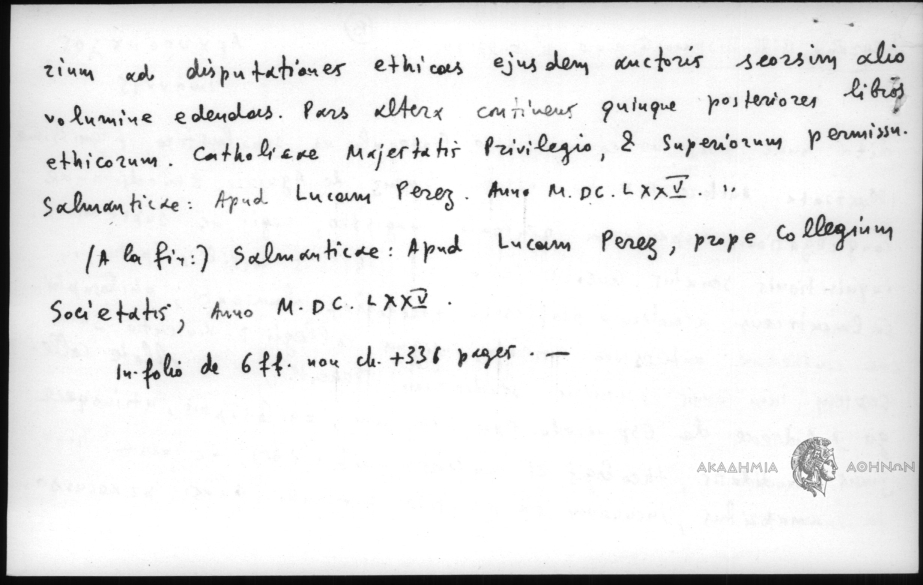 rium ad disputationes ethicas ejusdem auctoris seorsim alio
volumine edendas. Pars altera continens quinque posteriores libros
ethicorum. Catholicae Majestatis Privilegio, & Superiorum permissu.
Salmanticae: Apud Lucam Perez. Anno M.DC.LXXV.
(A la fin:) Salmanticae: Apud Lucam Perez, prope Collegium
Societatis, Anno M.DC.LXXV.
In-folio de 6 ff. non ch. +336 pages. —
ΑΚΑΔΗΜΙΑ ΑΘΗΝΩΝ